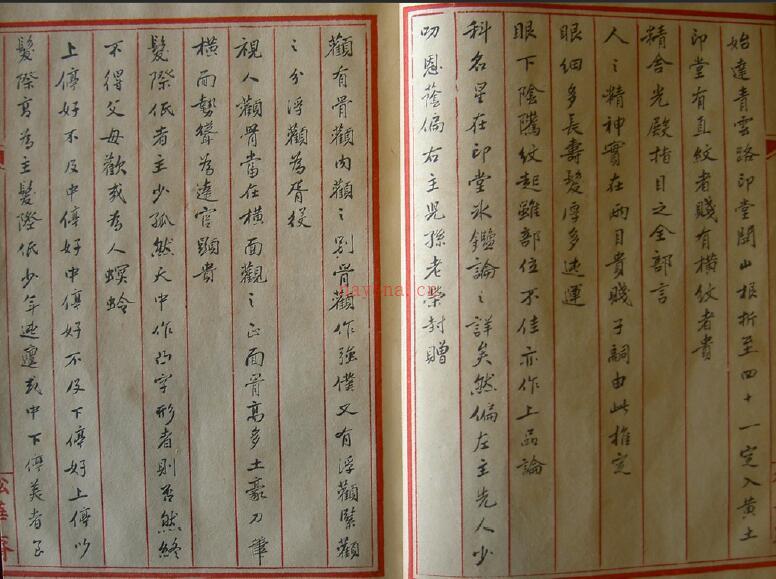 始達青雲路印堂開山根折至四十一定入黄土
印堂有直紋者賤有横紋者貴
精舍光殿指目之全部言
人之精神實在兩目貴賤子嗣由此推定
眼細多長壽髮厚多迍邅
眼下陰騭紋起雖部位不佳亦作上品論
科名星在印堂冰鑑論之詳矣然偏左主先人少
叨恩蔭偏右主児孫老榮封贈
顴有骨顴肉顴之别骨顴作強僕又有浮顴緊顴
之分浮顴為胥役
視人顴骨當在横面觀之正面骨高多土豪刀筆
横面勢聳為達官顕貴
髮際低者主少孤然天中作凸字形者則否然終
不得父母歡或為人螟蛉
上停好不及中停好中停好不及下停好上停以
髮際高為主髮際低少年迍邅或中下停美者子
松華齋